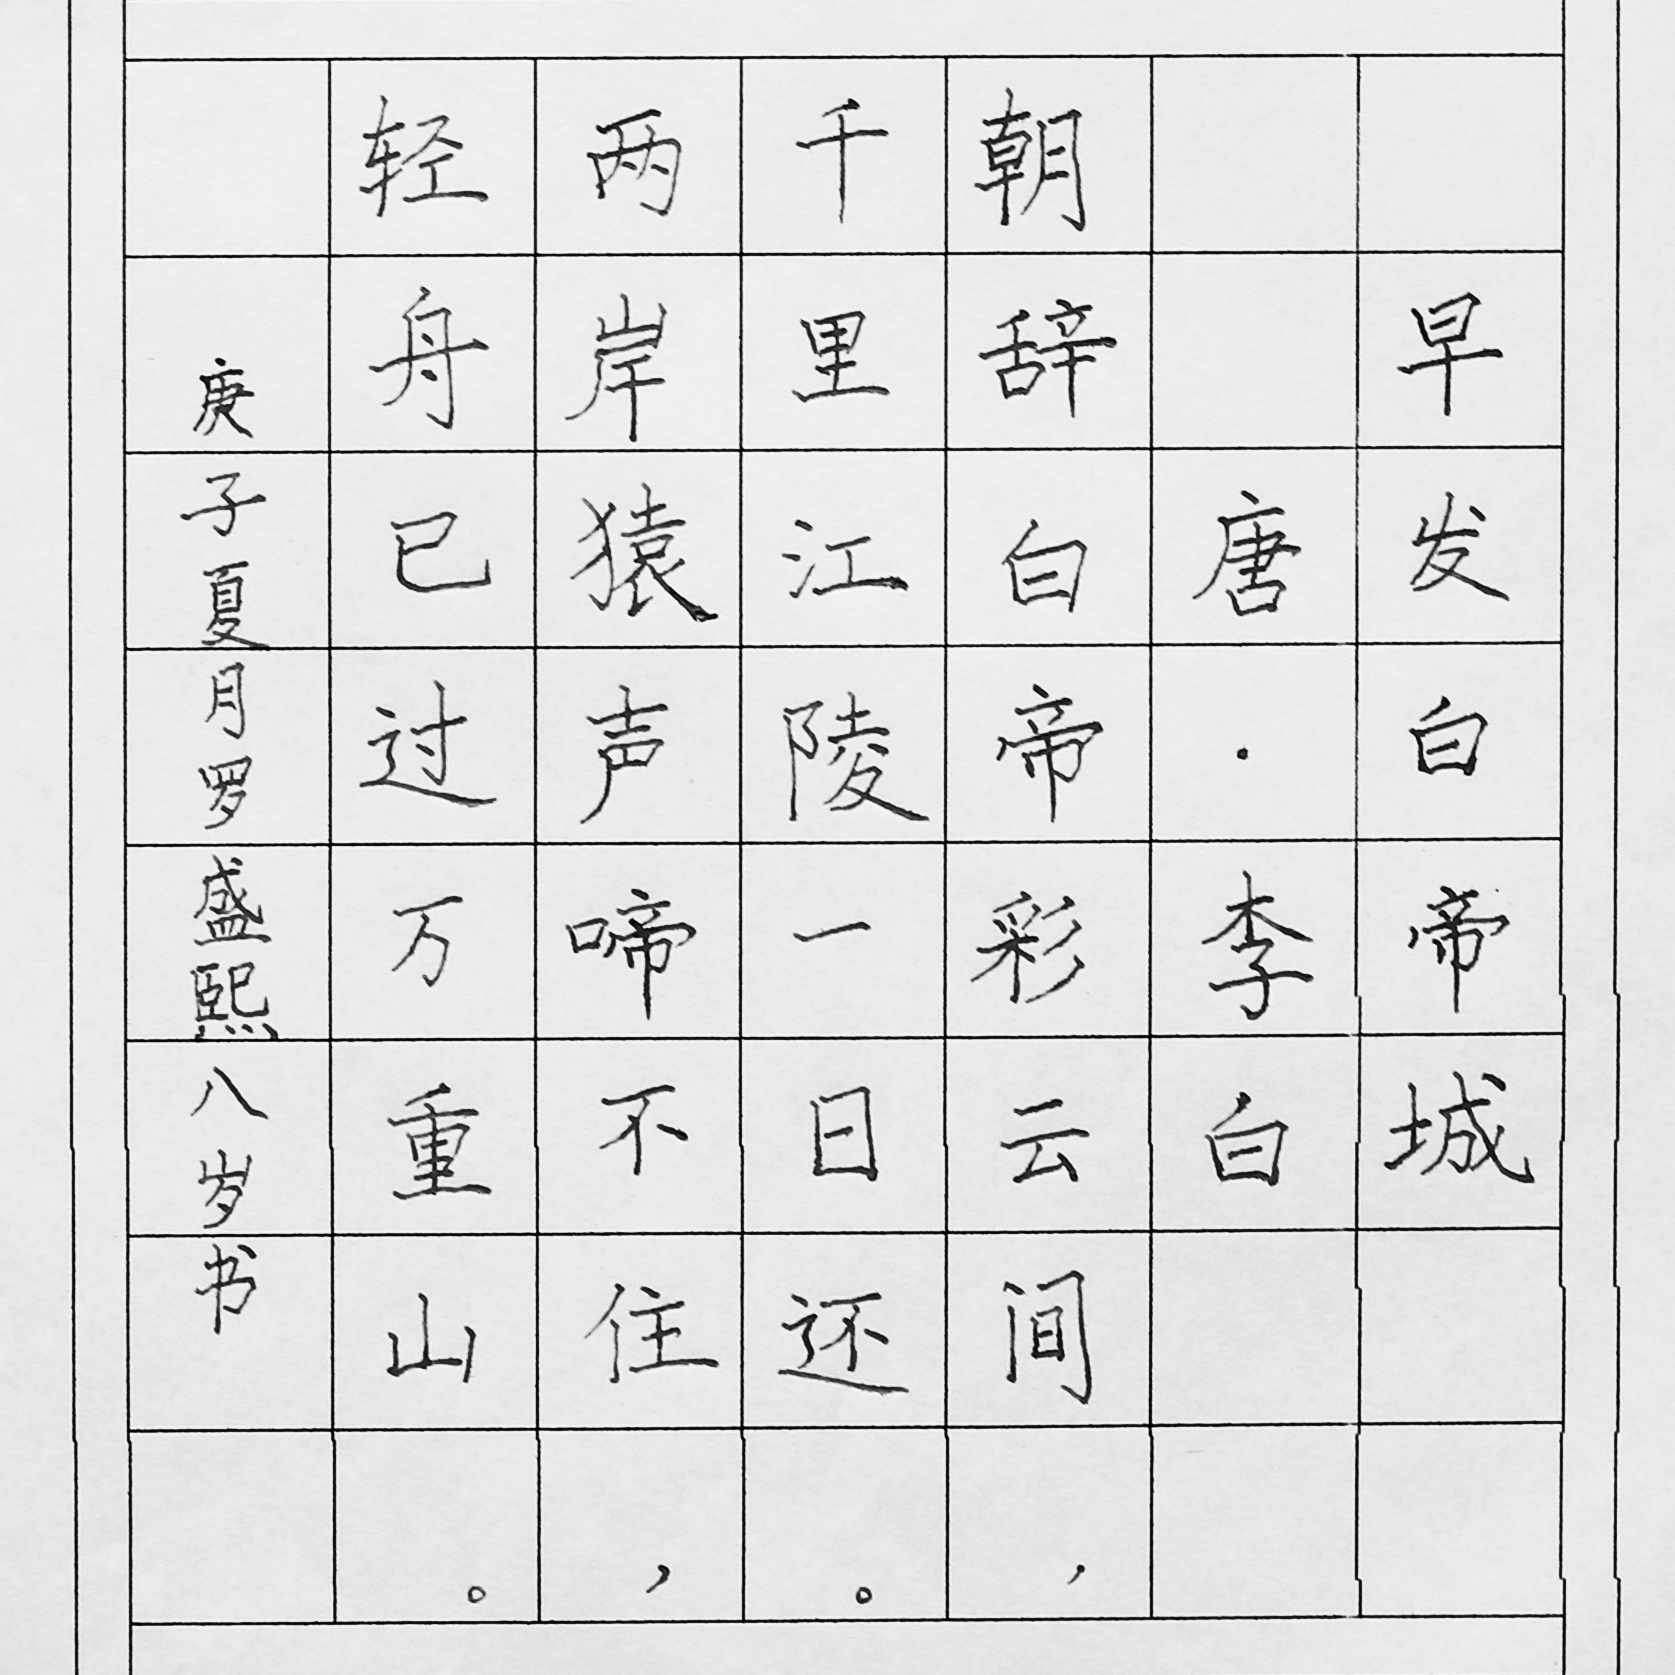 早发白帝城
唐·李白
朝辞白帝彩云间，
千里江陵一日还。
两岸猿声啼不住，
轻舟已过万重山。
庚子夏月罗盛熙八岁书